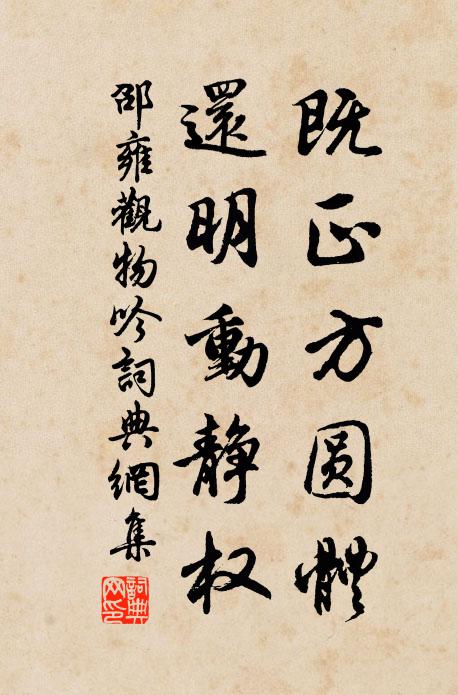 既正方圆體
還明動静权
邵雍觀物吟詞典網集
詞典网印